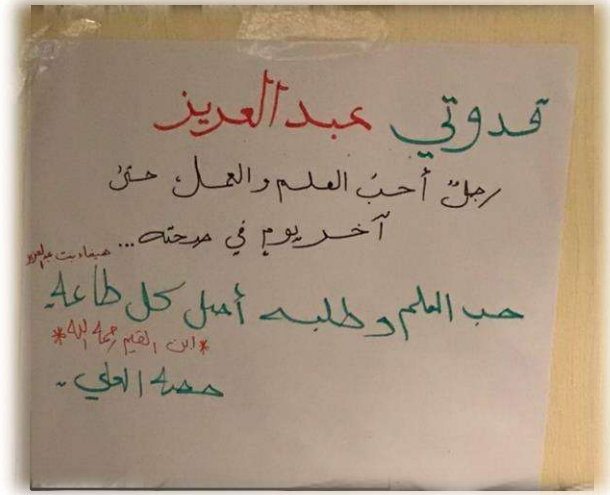 قدوتي عبدالعزيز
رجلٌ أحبّ العلم والعمل، حتى
آخر يومٍ في صحته...
هيفاء بنت عبدالعزيز
حب العلم وطلبه أصل كل طاعة
*ابن القيم رحمه الله*
حصة العلي.